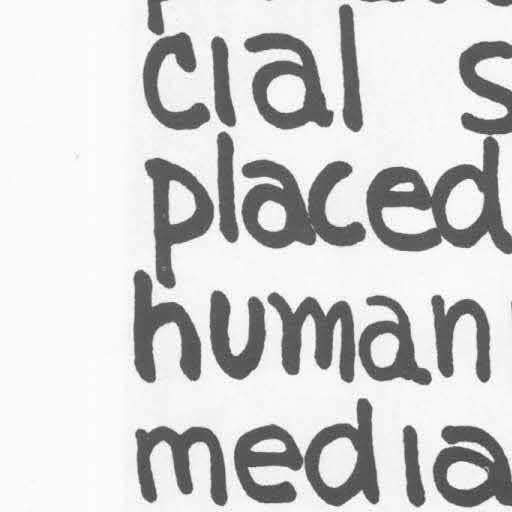 cial s
placed
human n
media